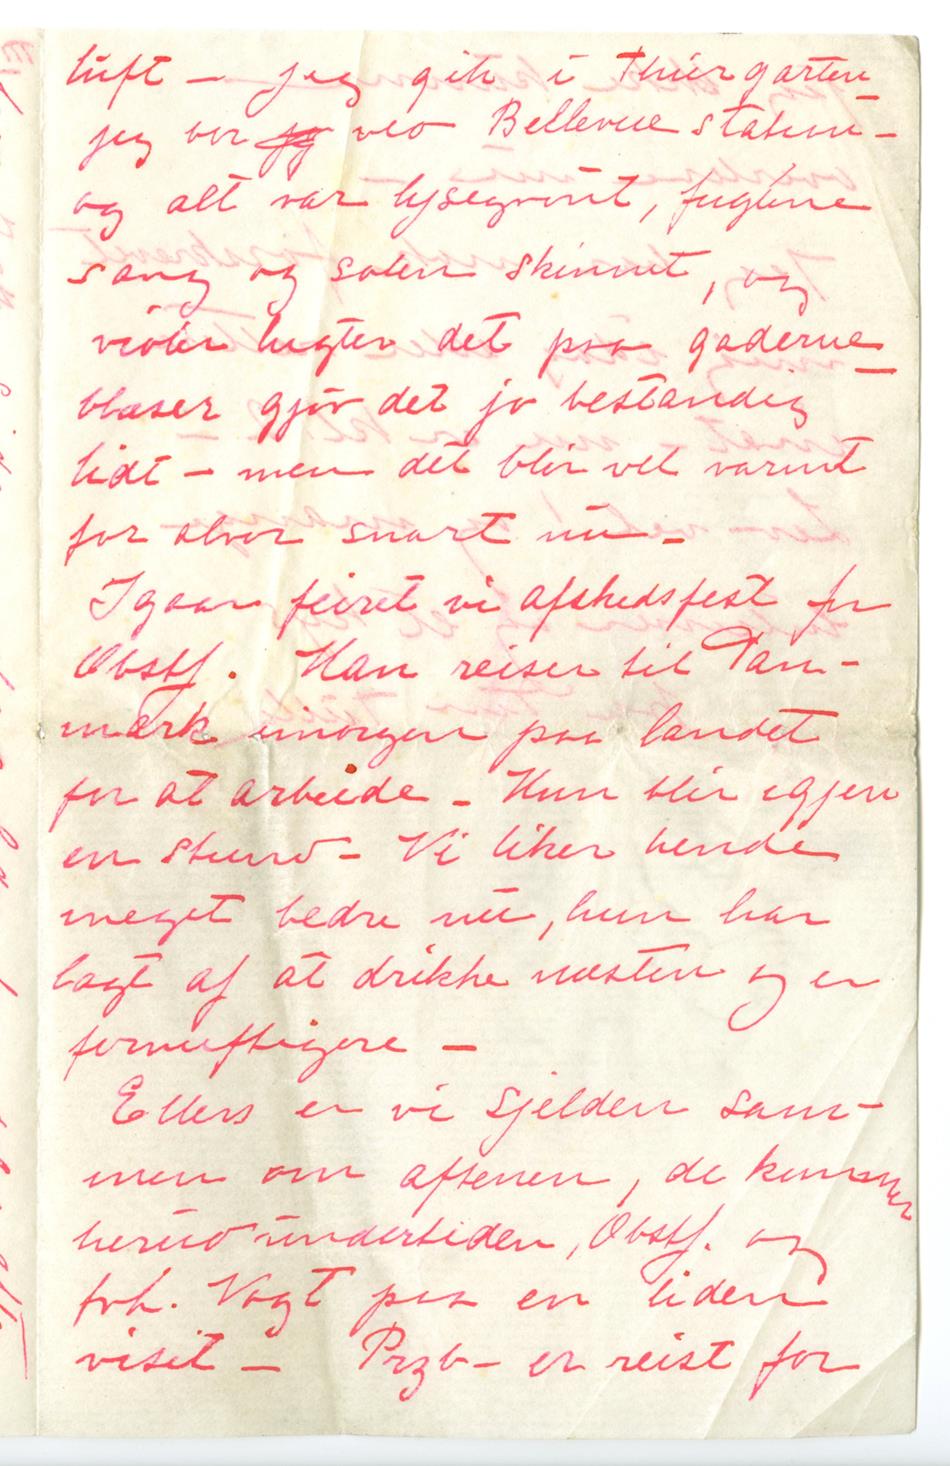 luft – jeg gik i Thiergarten –
jeg bor jeg ved Bellevue station –
og alt var lysegrønt, fuglene
sang og solen skinnet, og
violer lugter det paa gaderne –
blæser gjør det jo bestandig
lidt – men det blir vel varmt
for alvor snart nu –
Igaar feiret vi afskedsfest for
Obstf. Han reiser til Dan-
mærk imorgen paa landet
for at arbeide – Hun blir igjen
en stund – Vi liker hende
meget bedre nu, hun har
lagt af at drikke næsten og er
fornuftigere –
Ellers er vi sjelden sam-
men om aftenen, de kommer
herud undertiden, Obstf. og
frk. Vogt paa en liden
visit – Przb – er reist for